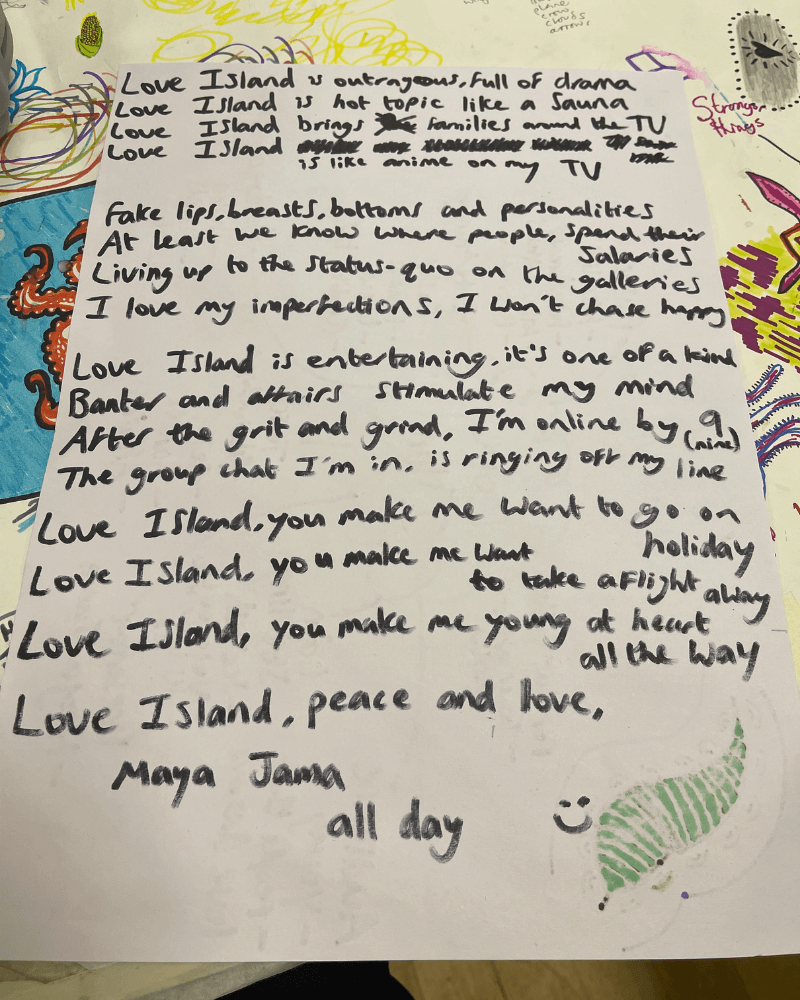 plane
crew
clouds
arrows
Stronger
things
Love Island is outrageous, full of drama
Love Island is hot topic like a Sauna
Love Island brings families around the TV
Love Island
is like anime on my TV
Fake lips, breasts, bottoms and personalities
At least we know where people, spend their
Salaries
Living up to the status-quo on the galleries
I love my imperfections, I won't chase happy
Love Island is entertaining, it's one of a kind
Banter and affairs stimulate my mind
After the grit and grind, I'm online by 9
(nine)
The group chat I'm in, is ringing off my line
Love Island, you make me want to go on
holiday
Love Island, you make me want
to take a flight away
Love Island, you make me young at heart
all the way
Love Island, peace and love,
Maya Jama
all day